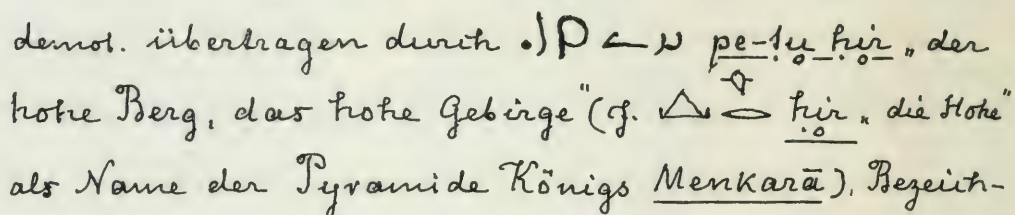 demot. übertragen durch pe-tu ḥir „der
hohe Berg, das hohe Gebirge" (cf. ḥir „die Höhe"
als Name der Pyramide Königs Menkarā), Bezeich-